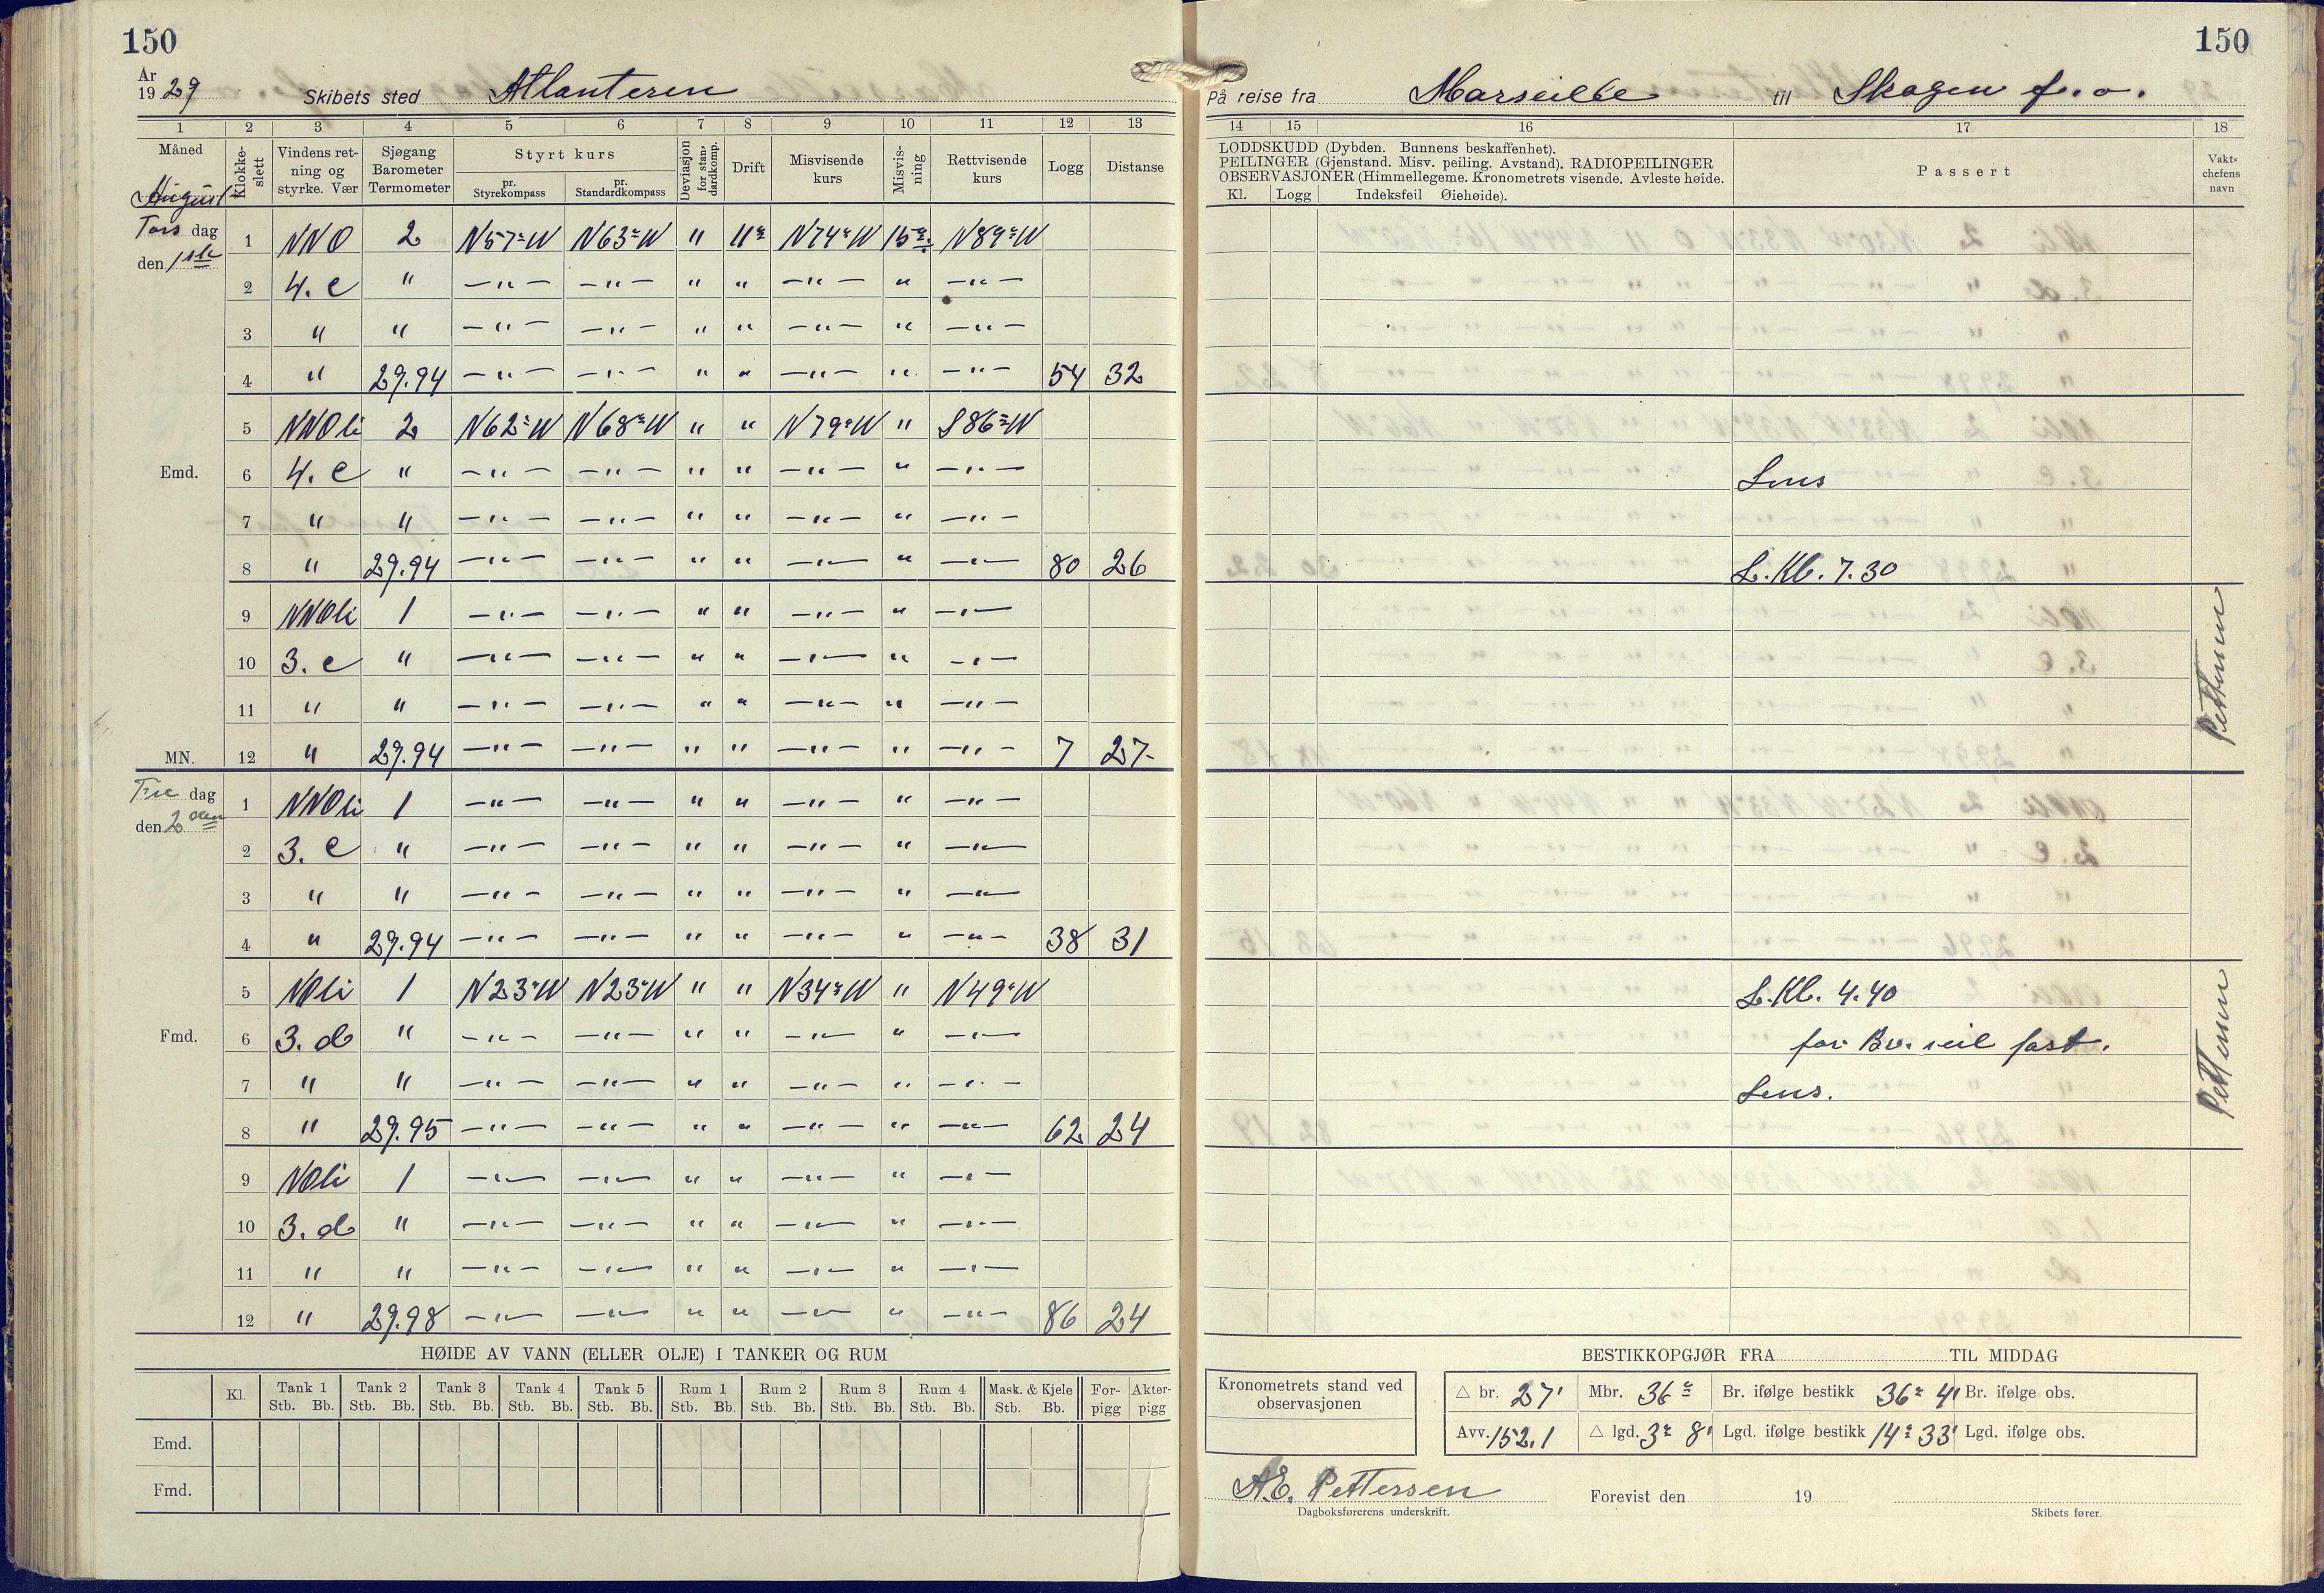 150
År
1929 Skibets sted Atlanteren
1 2 3 4 5 6 7 8 9 10 11 12 13
Måned Klokke-slett Vindens ret-ning og styrke. Vær Sjøgang Barometer Termometer Styrt kurs Deviasjon for stan-dardkomp. Drift Misvisende kurs Misvis-ning Rettvisende kurs Logg Distanse
pr. Styrekompass pr. Standardkompass
August
Tors dag 1 NNO 2 N57°W N63°W " 11° N74°W 15° N89°W
den 1ste
2 4. c " —"— —"— " " —"— " —"—
3 " " —"— —"— " " —"— " —"—
4 " 29.94 —"— —"— " " —"— " —"— 54 32
5 NNOli 2 N62°W N68°W " " N79°W " S86°W
Emd. 6 4. c " —"— —"— " " —"— " —"—
7 " " —"— —"— " " —"— " —"—
8 " 29.94 —"— —"— " " —"— " —"— 80 26
9 NNOli 1 —"— —"— " " —"— " —"—
10 3. c " —"— —"— " " —"— " —"—
11 " " —"— —"— " " —"— " —"—
MN. 12 " 29.94 —"— —"— " " —"— " —"— 7 27
Fre dag 1 NNOli 1 —"— —"— " " —"— " —"—
den 2den
2 3. c " —"— —"— " " —"— " —"—
3 " " —"— —"— " " —"— " —"—
4 " 29.94 —"— —"— " " —"— " —"— 38 31
5 NOli 1 N23°W N23°W " " N34°W " N49°W
Fmd. 6 3. d " —"— —"— " " —"— " —"—
7 " " —"— —"— " " —"— " —"—
8 " 29.95 —"— —"— " " —"— " —"— 62 24
9 NOli 1 —"— —"— " " —"— " —"—
10 3. d " —"— —"— " " —"— " —"—
11 " " —"— —"— " " —"— " —"—
12 " 29.98 —"— —"— " " —"— " —"— 86 24
HØIDE AV VANN (ELLER OLJE) I TANKER OG RUM
Kl. Tank 1 Tank 2 Tank 3 Tank 4 Tank 5 Rum 1 Rum 2 Rum 3 Rum 4 Mask. & Kjele For-pigg Akter-pigg
Stb. Bb. Stb. Bb. Stb. Bb. Stb. Bb. Stb. Bb. Stb. Bb. Stb. Bb. Stb. Bb. Stb. Bb. Stb. Bb.
Emd.
Fmd.
150
På reise fra Marseille til Skagen f. o.
14 15 16 17 18
LODDSKUDD (Dybden. Bunnens beskaffenhet).
PEILINGER (Gjenstand. Misv. peiling. Avstand). RADIOPEILINGER
OBSERVASJONER (Himmellegeme. Kronometrets visende. Avleste høide.
Kl. Logg Indeksfeil Øiehøide).
Passert
Vakt-chefens navn
Lens
L. Kl. 7.30
Pettersen
L. Kl. 4.40
for Br. seil fast.
Lens.
Pettersen
BESTIKKOPGJØR FRA TIL MIDDAG
Kronometrets stand ved observasjonen
△ br. 27' Mbr. 36° Br. ifølge bestikk 36° 41 Br. ifølge obs.
Avv. 152.1 △ lgd. 3° 8' Lgd. ifølge bestikk 14° 33' Lgd. ifølge obs.
A.E. Pettersen Forevist den 19
Dagboksførerens underskrift. Skibets fører.